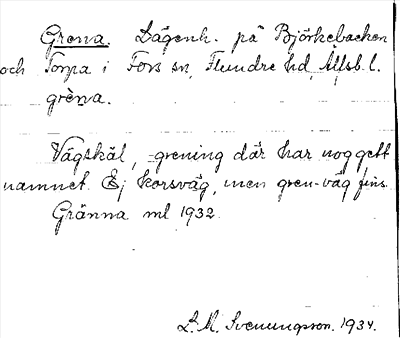 Grenna. Lägenh. på Björkebacken
och Torpa i Fors sn, Flundre hd, Älfsb. l.
grènna.
Vägskäl, grening där har nog gett
namnet. Ej korsväg, men gren-väg fins.
Gränna ml 1932.
L. M. Svenungsson. 1934.